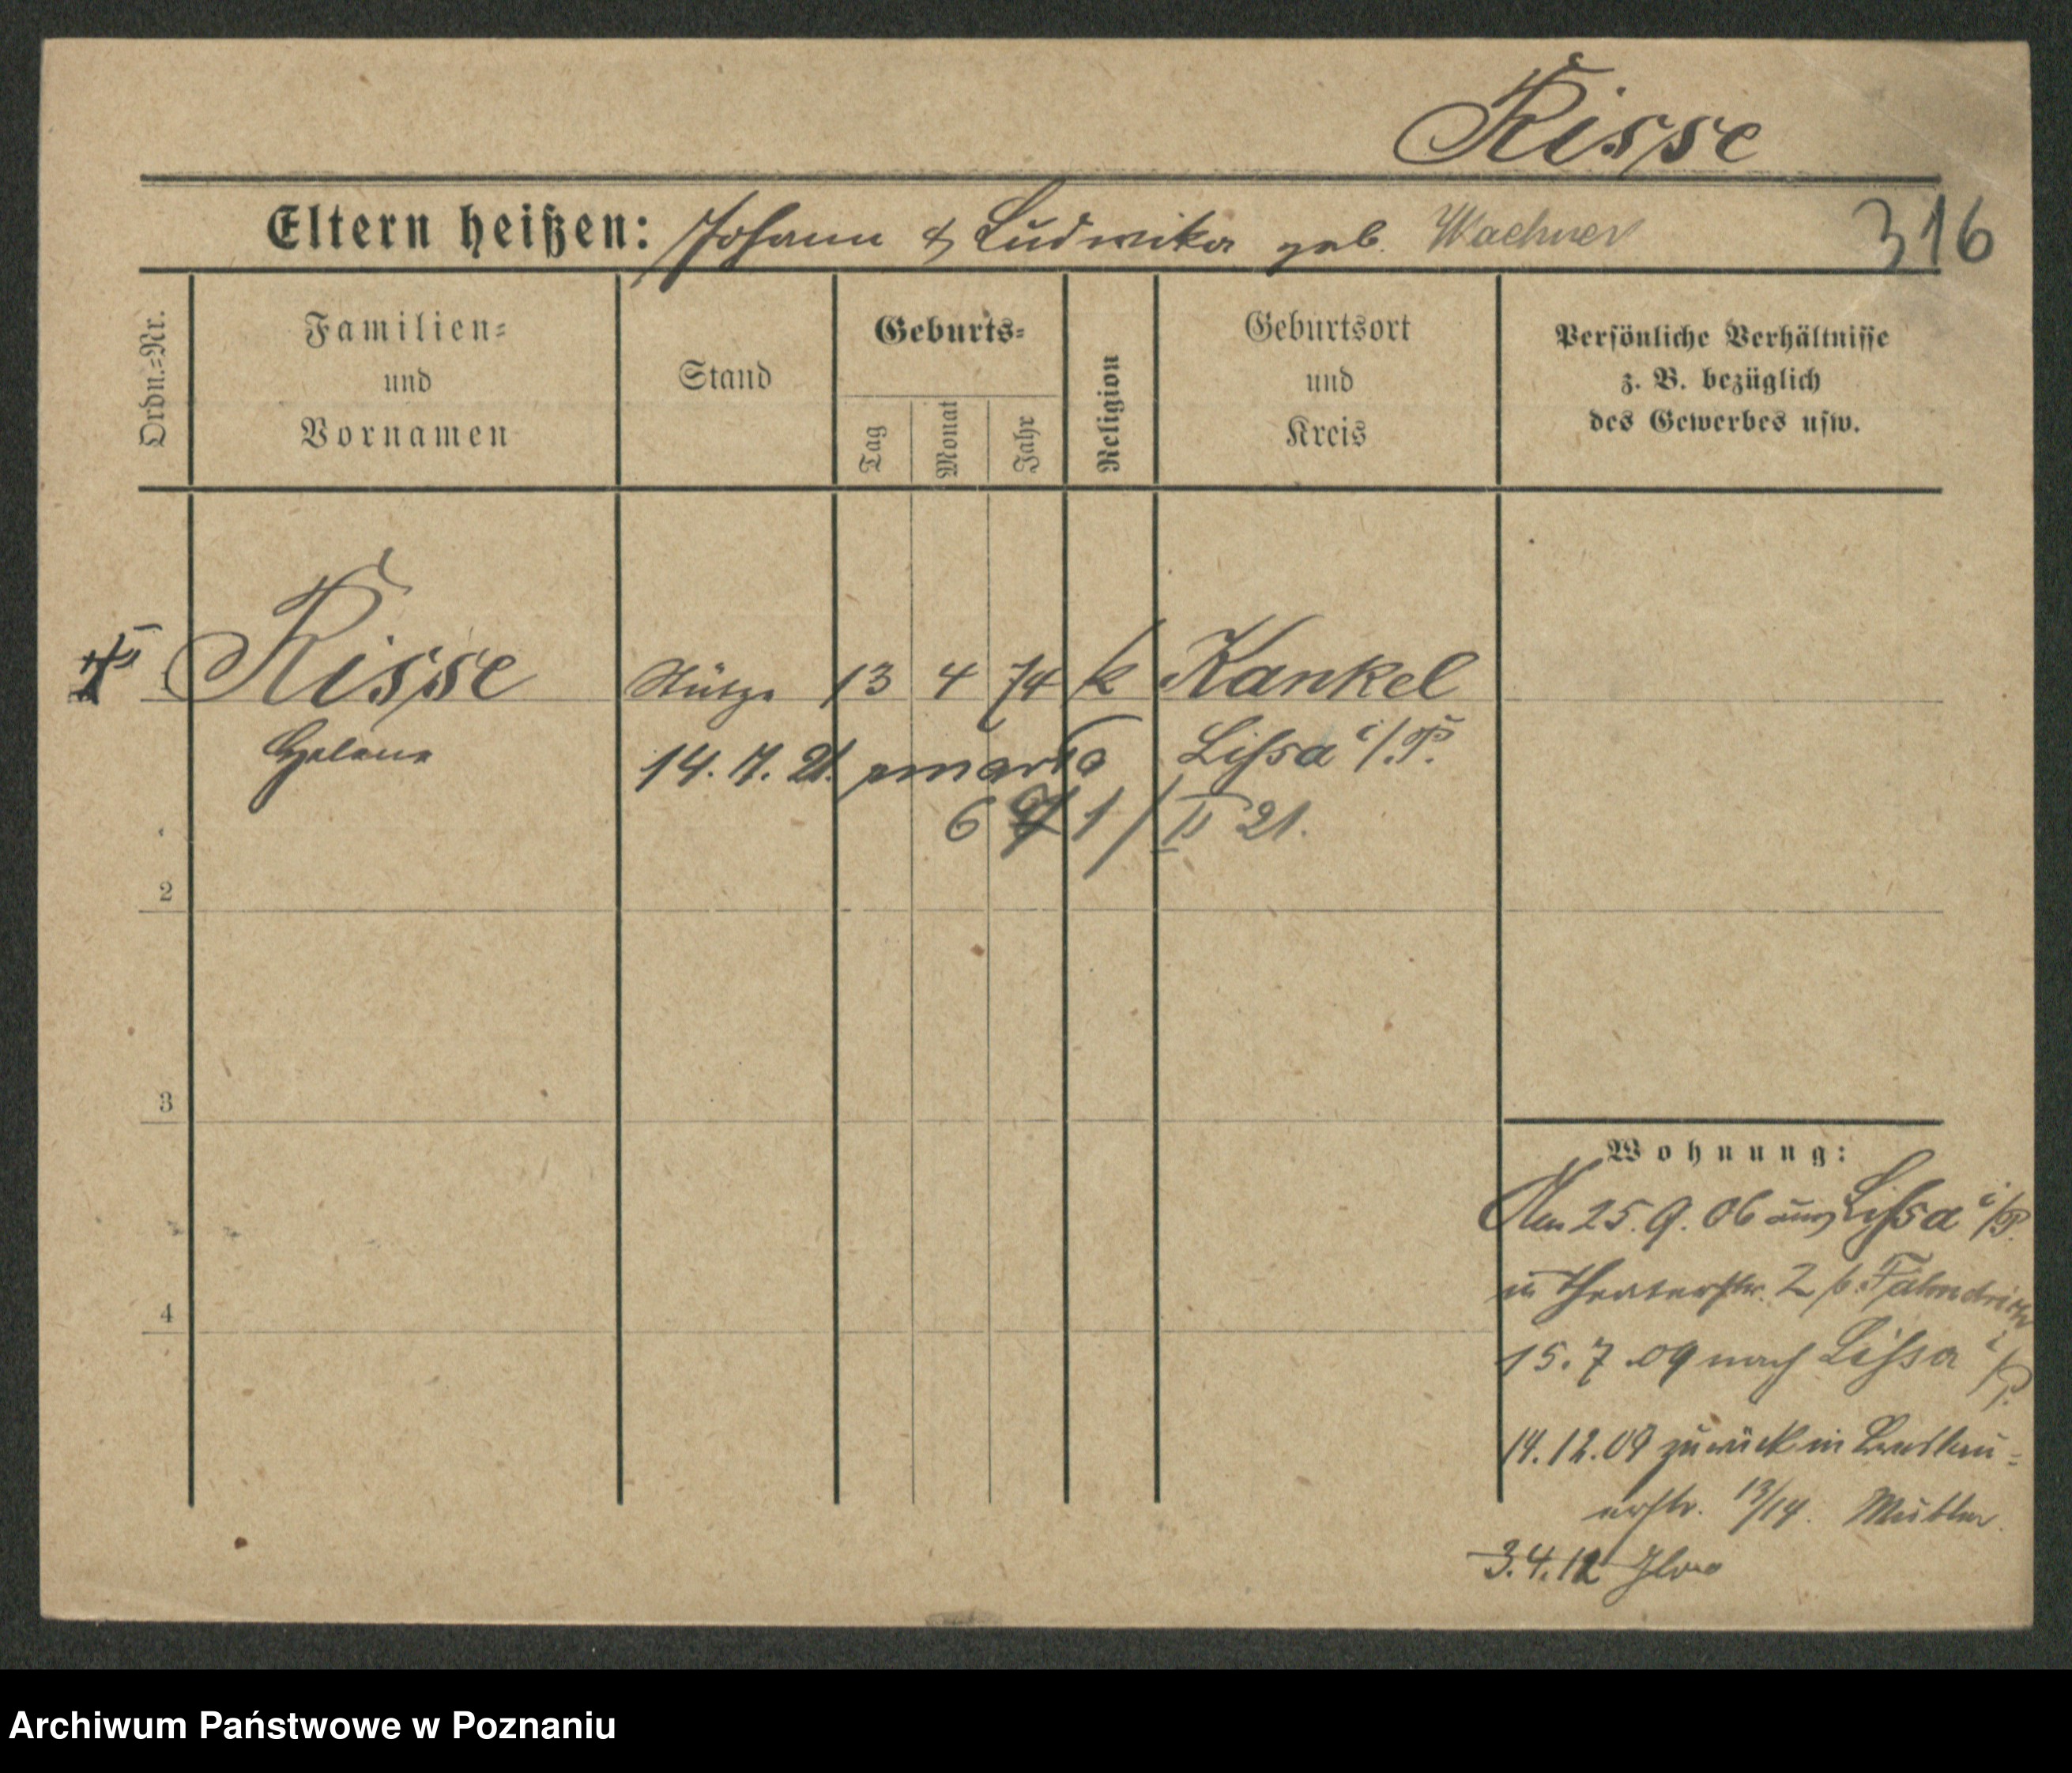 Risse
Eltern heißen: Johann & Ludwika geb. Waehner
316
Ordn.-Nr.
Familien-
und
Vornamen
Stand
Geburts-
Tag
Monat
Jahr
Religion
Geburtsort
und
Kreis
Persönliche Verhältnisse
z. B. bezüglich
des Gewerbes usw.
1 Risse Stütze 13 4 74 k Kankel
Helene
Lissa i/P.
14. 7. 21. zmarła
1/II 21.
2
3
4
Wohnung:
Am 25. 9. 06 aus Lissa i/P.
in Theaterstr. 2 b.
15. 7. 09 nach Lissa i/P.
14. 12. 09 zurück in
erstr. 13/14.
3. 4. 12
Archiwum Państwowe w Poznaniu